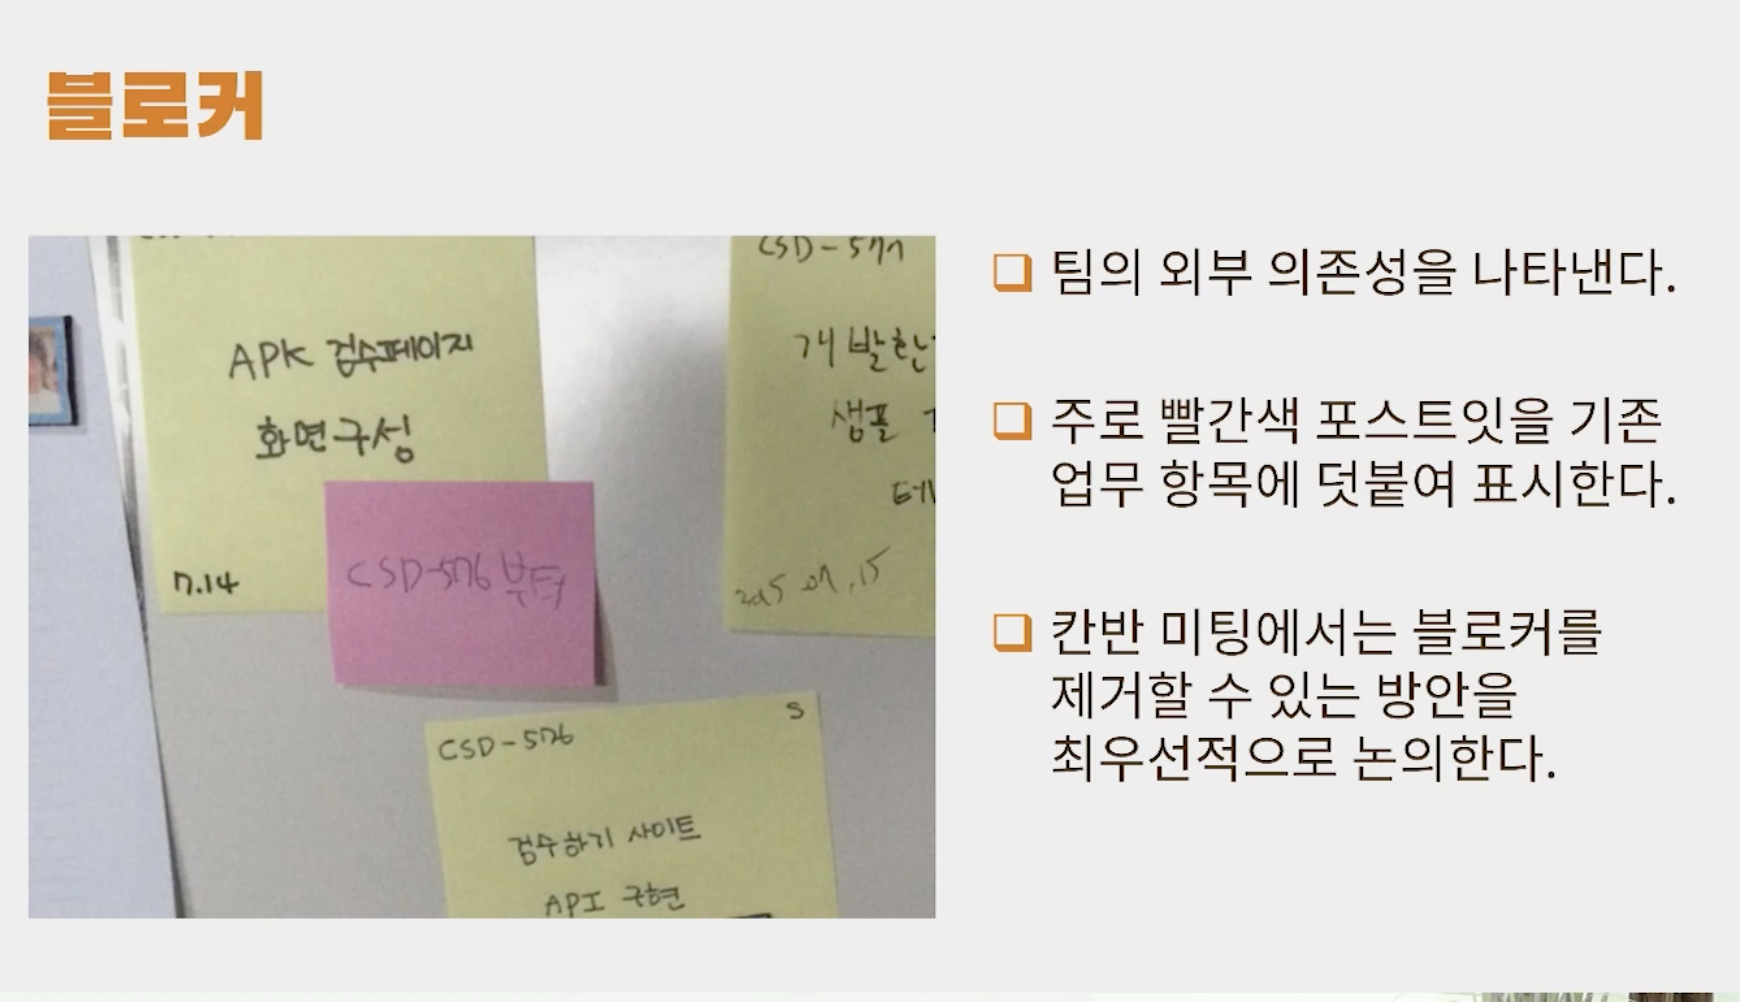 블로커
APK 검수페이지
화면구성
7.14
CSD-576 부터
CSD-577
개발한
샘플
2015.07.15
CSD-576
S
검수하기 사이트
API 구현
❑ 팀의 외부 의존성을 나타낸다.
❑ 주로 빨간색 포스트잇을 기존
업무 항목에 덧붙여 표시한다.
❑ 칸반 미팅에서는 블로커를
제거할 수 있는 방안을
최우선적으로 논의한다.